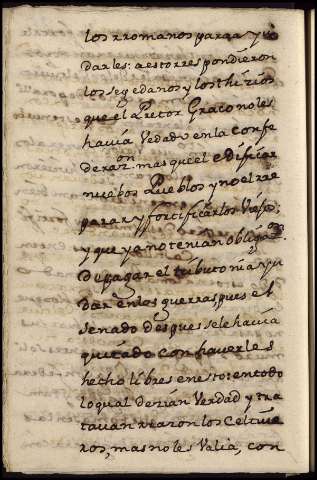 los rromanos para ayu
darles: a estorres pondieron
los segedanos y los thirios
que el Pretor Graco no les
havia Vedado en la confe
deraz.on mas que el edificar
nuebos Pueblos y no el rre
parar y fortificar los Viejos;
y que ya no tenian obligaz.on
De pagar el tributo ni a yu
dar en los guerras, pues el
senado despues se le havia
quitado con haverles
hecho libres en esto: en todo
lo qual dezian Verdad y tra
tavan rrazon los Celtive
ros, mas no les Valia, con